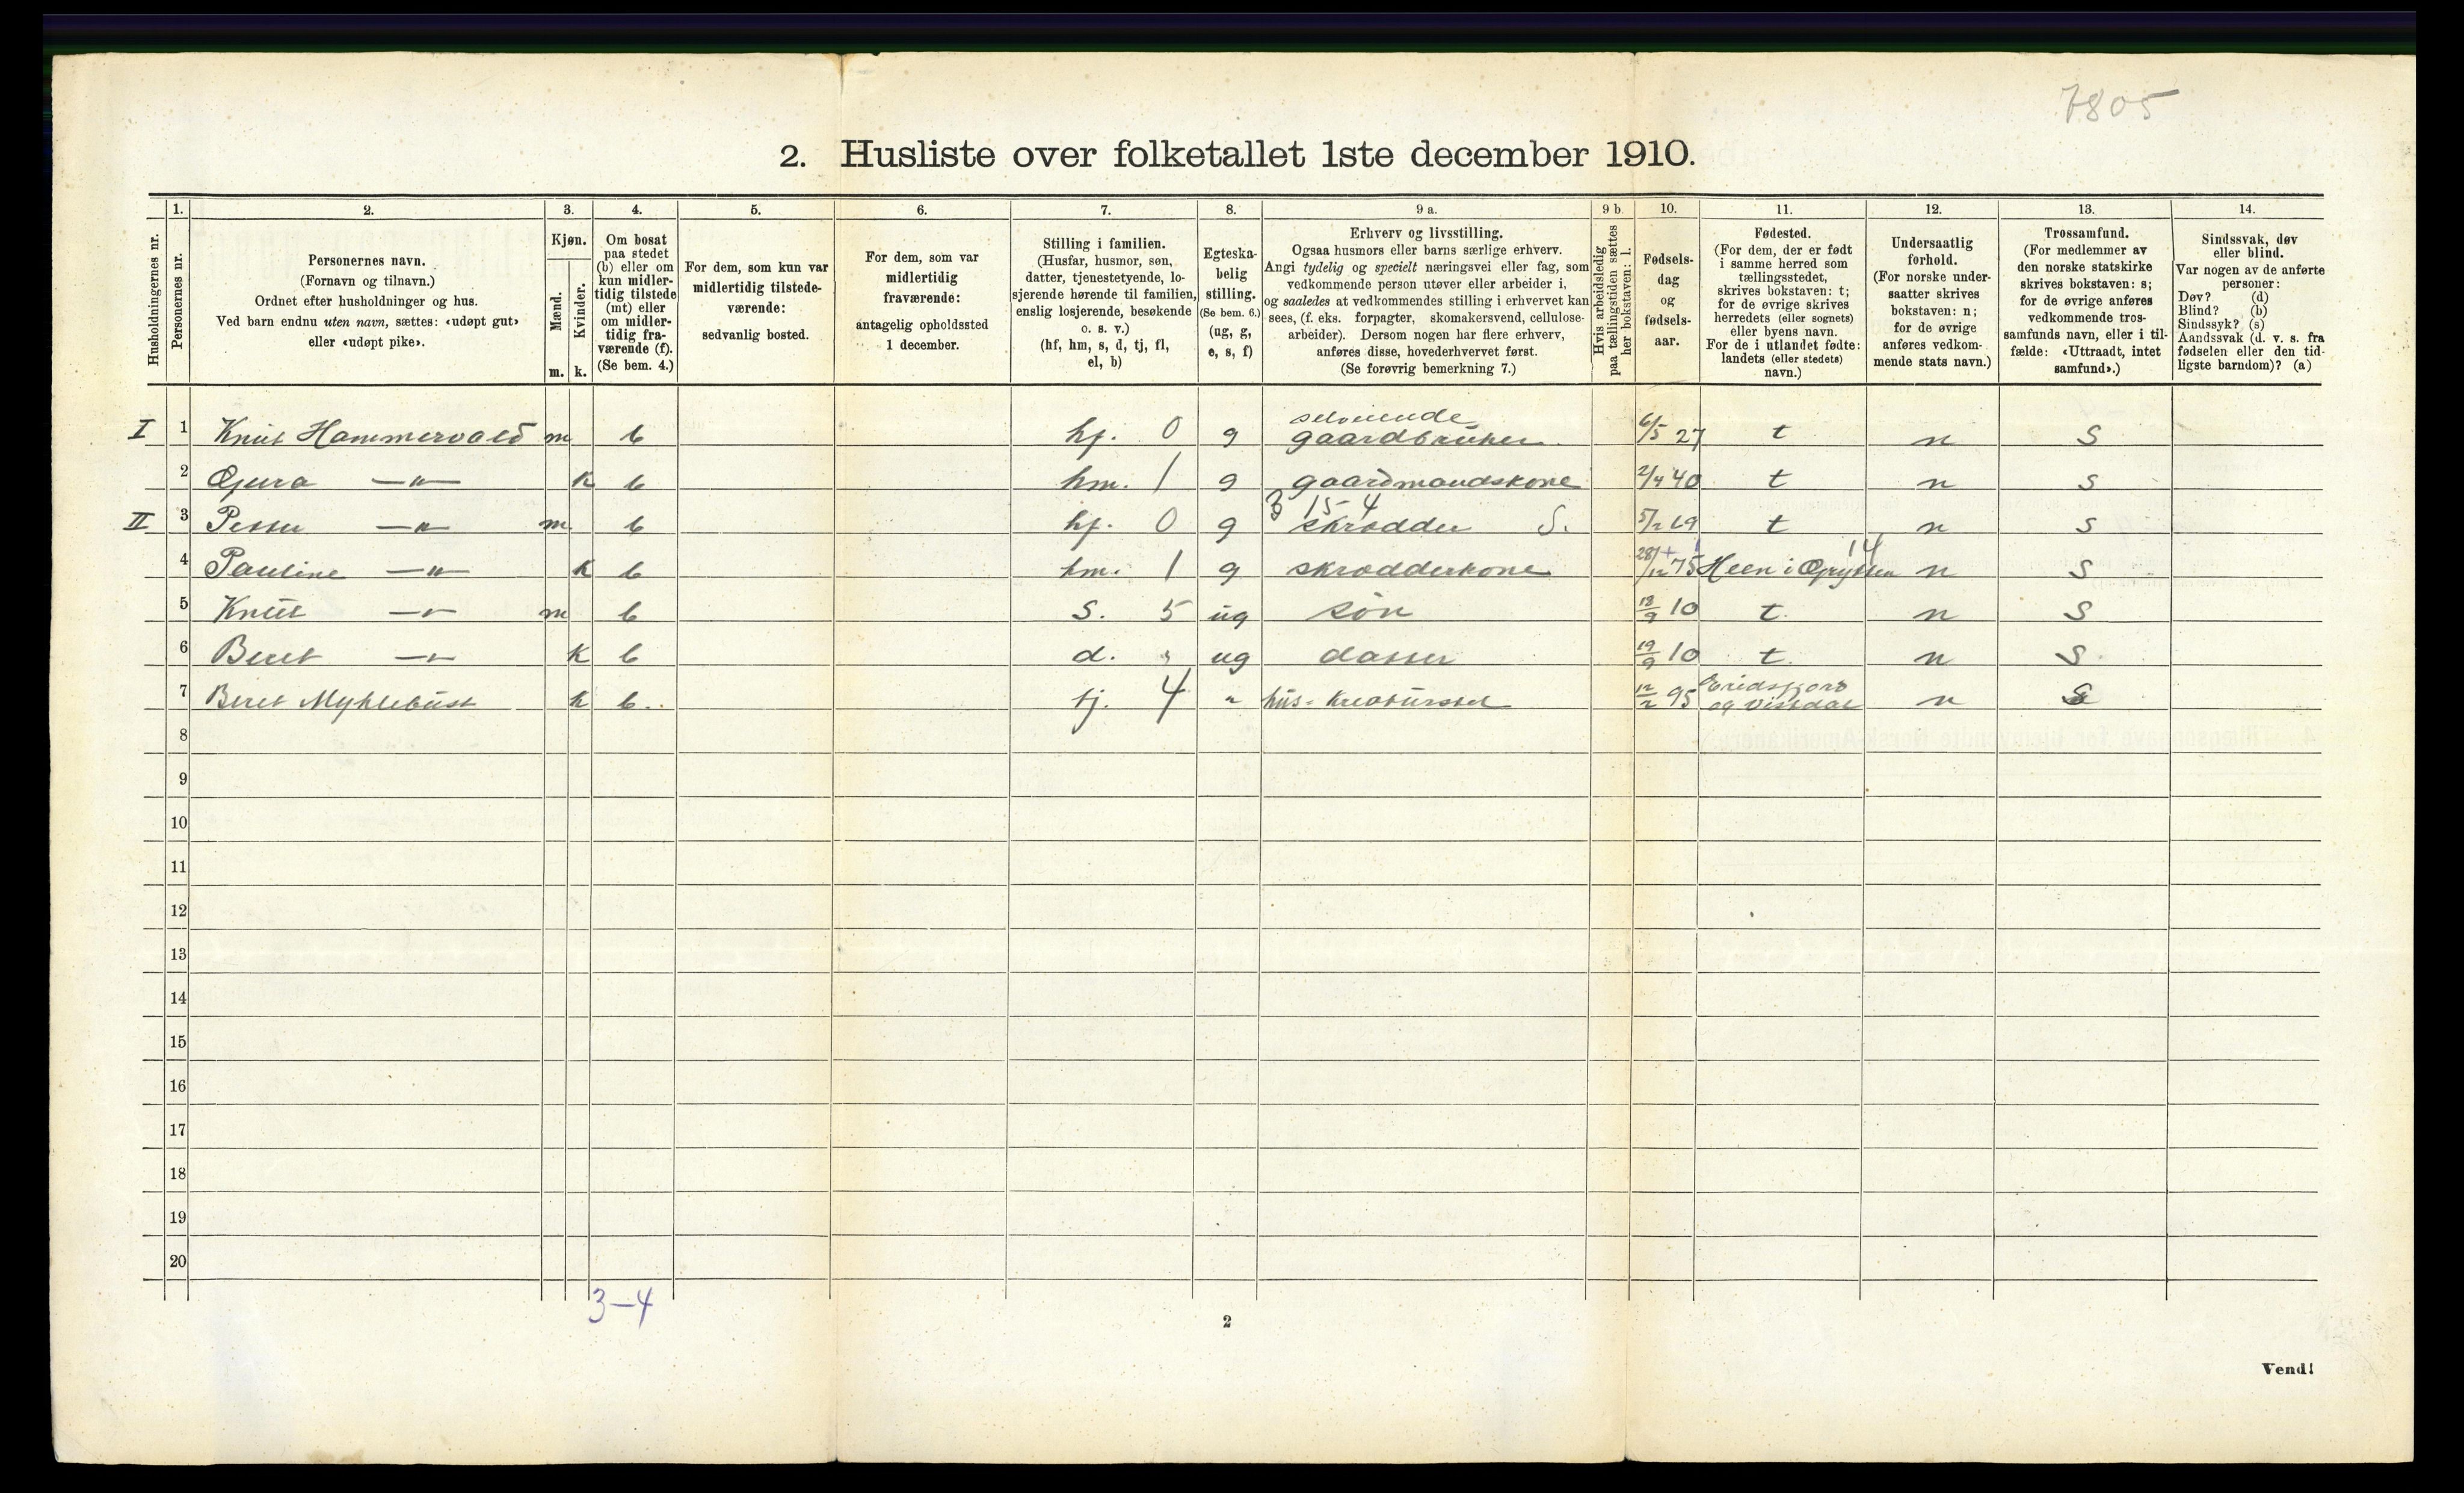 7805
2. Husliste over folketallet 1ste december 1910.
Husholdningernes nr.
1. Personernes nr.
2. Personernes navn.
(Fornavn og tilnavn.)
Ordnet efter husholdninger og hus.
Ved barn endnu uten navn, sættes: «udøpt gut»
eller «udøpt pike».
3. Kjøn.
Mænd. m.
Kvinder. k.
4. Om bosat
paa stedet
(b) eller om
kun midler-
tidig tilstede
(mt) eller
om midler-
tidig fra-
værende (f).
(Se bem. 4.)
5. For dem, som kun var
midlertidig tilstede-
værende:
sedvanlig bosted.
6. For dem, som var
midlertidig
fraværende:
antagelig opholdssted
1 december.
7. Stilling i familien.
(Husfar, husmor, søn,
datter, tjenestetyende, lo-
sjerende hørende til familien,
enslig losjerende, besøkende
o. s. v.)
(hf, hm, s, d, tj, fl,
el, b)
8. Egteska-
belig
stilling.
(Se bem. 6.)
(ug, g,
e, s, f)
9 a. Erhverv og livsstilling.
Ogsaa husmors eller barns særlige erhverv.
Angi tydelig og specielt næringsvei eller fag, som
vedkommende person utøver eller arbeider i,
og saaledes at vedkommendes stilling i erhvervet kan
sees, (f. eks. forpagter, skomakersvend, cellulose-
arbeider). Dersom nogen har flere erhverv,
anføres disse, hovederhvervet først.
(Se forøvrig bemerkning 7.)
9 b. Hvis arbeidsledig
paa tællingstiden sættes
her bokstaven: l.
10. Fødsels-
dag
og
fødsels-
aar.
11. Fødested.
(For dem, der er født
i samme herred som
tællingsstedet,
skrives bokstaven: t;
for de øvrige skrives
herredets (eller sognets)
eller byens navn.
For de i utlandet fødte:
landets (eller stedets)
navn.)
12. Undersaatlig
forhold.
(For norske under-
saatter skrives
bokstaven: n;
for de øvrige
anføres vedkom-
mende stats navn.)
13. Trossamfund.
(For medlemmer av
den norske statskirke
skrives bokstaven: s;
for de øvrige anføres
vedkommende tros-
samfunds navn, eller i til-
fælde: «Uttraadt, intet
samfund».)
14. Sindssvak, døv
eller blind.
Var nogen av de anførte
personer:
Døv? (d)
Blind? (b)
Sindssyk? (s)
Aandssvak (d. v. s. fra
fødselen eller den tid-
ligste barndom)? (a)
selveiende
I 1 Knut Hammervold m b hf. 0 g gaardbruker 6/5 27 t n s
2 Gjura —"— k b hm. 1 g gaardmandskone 2/4 40 t n s
15-4
II 3 Petter —"— m b hf. 0 g skrædder S. 5/2 69 t n s
14
4 Pauline —"— k b hm. 1 g skrædderkone 28/12 75 Heen i Grytten n s
5 Knut —"— m b s. 5 ug søn 18/9 10 t. n s
6 Beret —"— k b d. " ug datter 19/9 10 t. n s
7 Beret Myklebust k b. tj. 4 " hus- kreaturstel 12/2 95 Eridsfjord
og Vistdal n s
8
9
10
11
12
13
14
15
16
17
18
19
20
3-4
2
Vend!